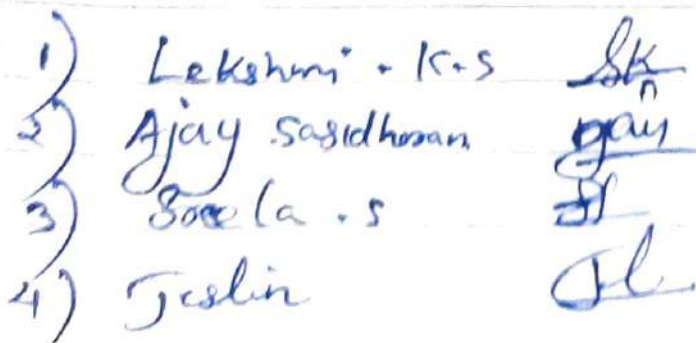 1) Lekshmi . K.S
2) Ajay Sasidharan
3) Sreela . S
4) Jeslin